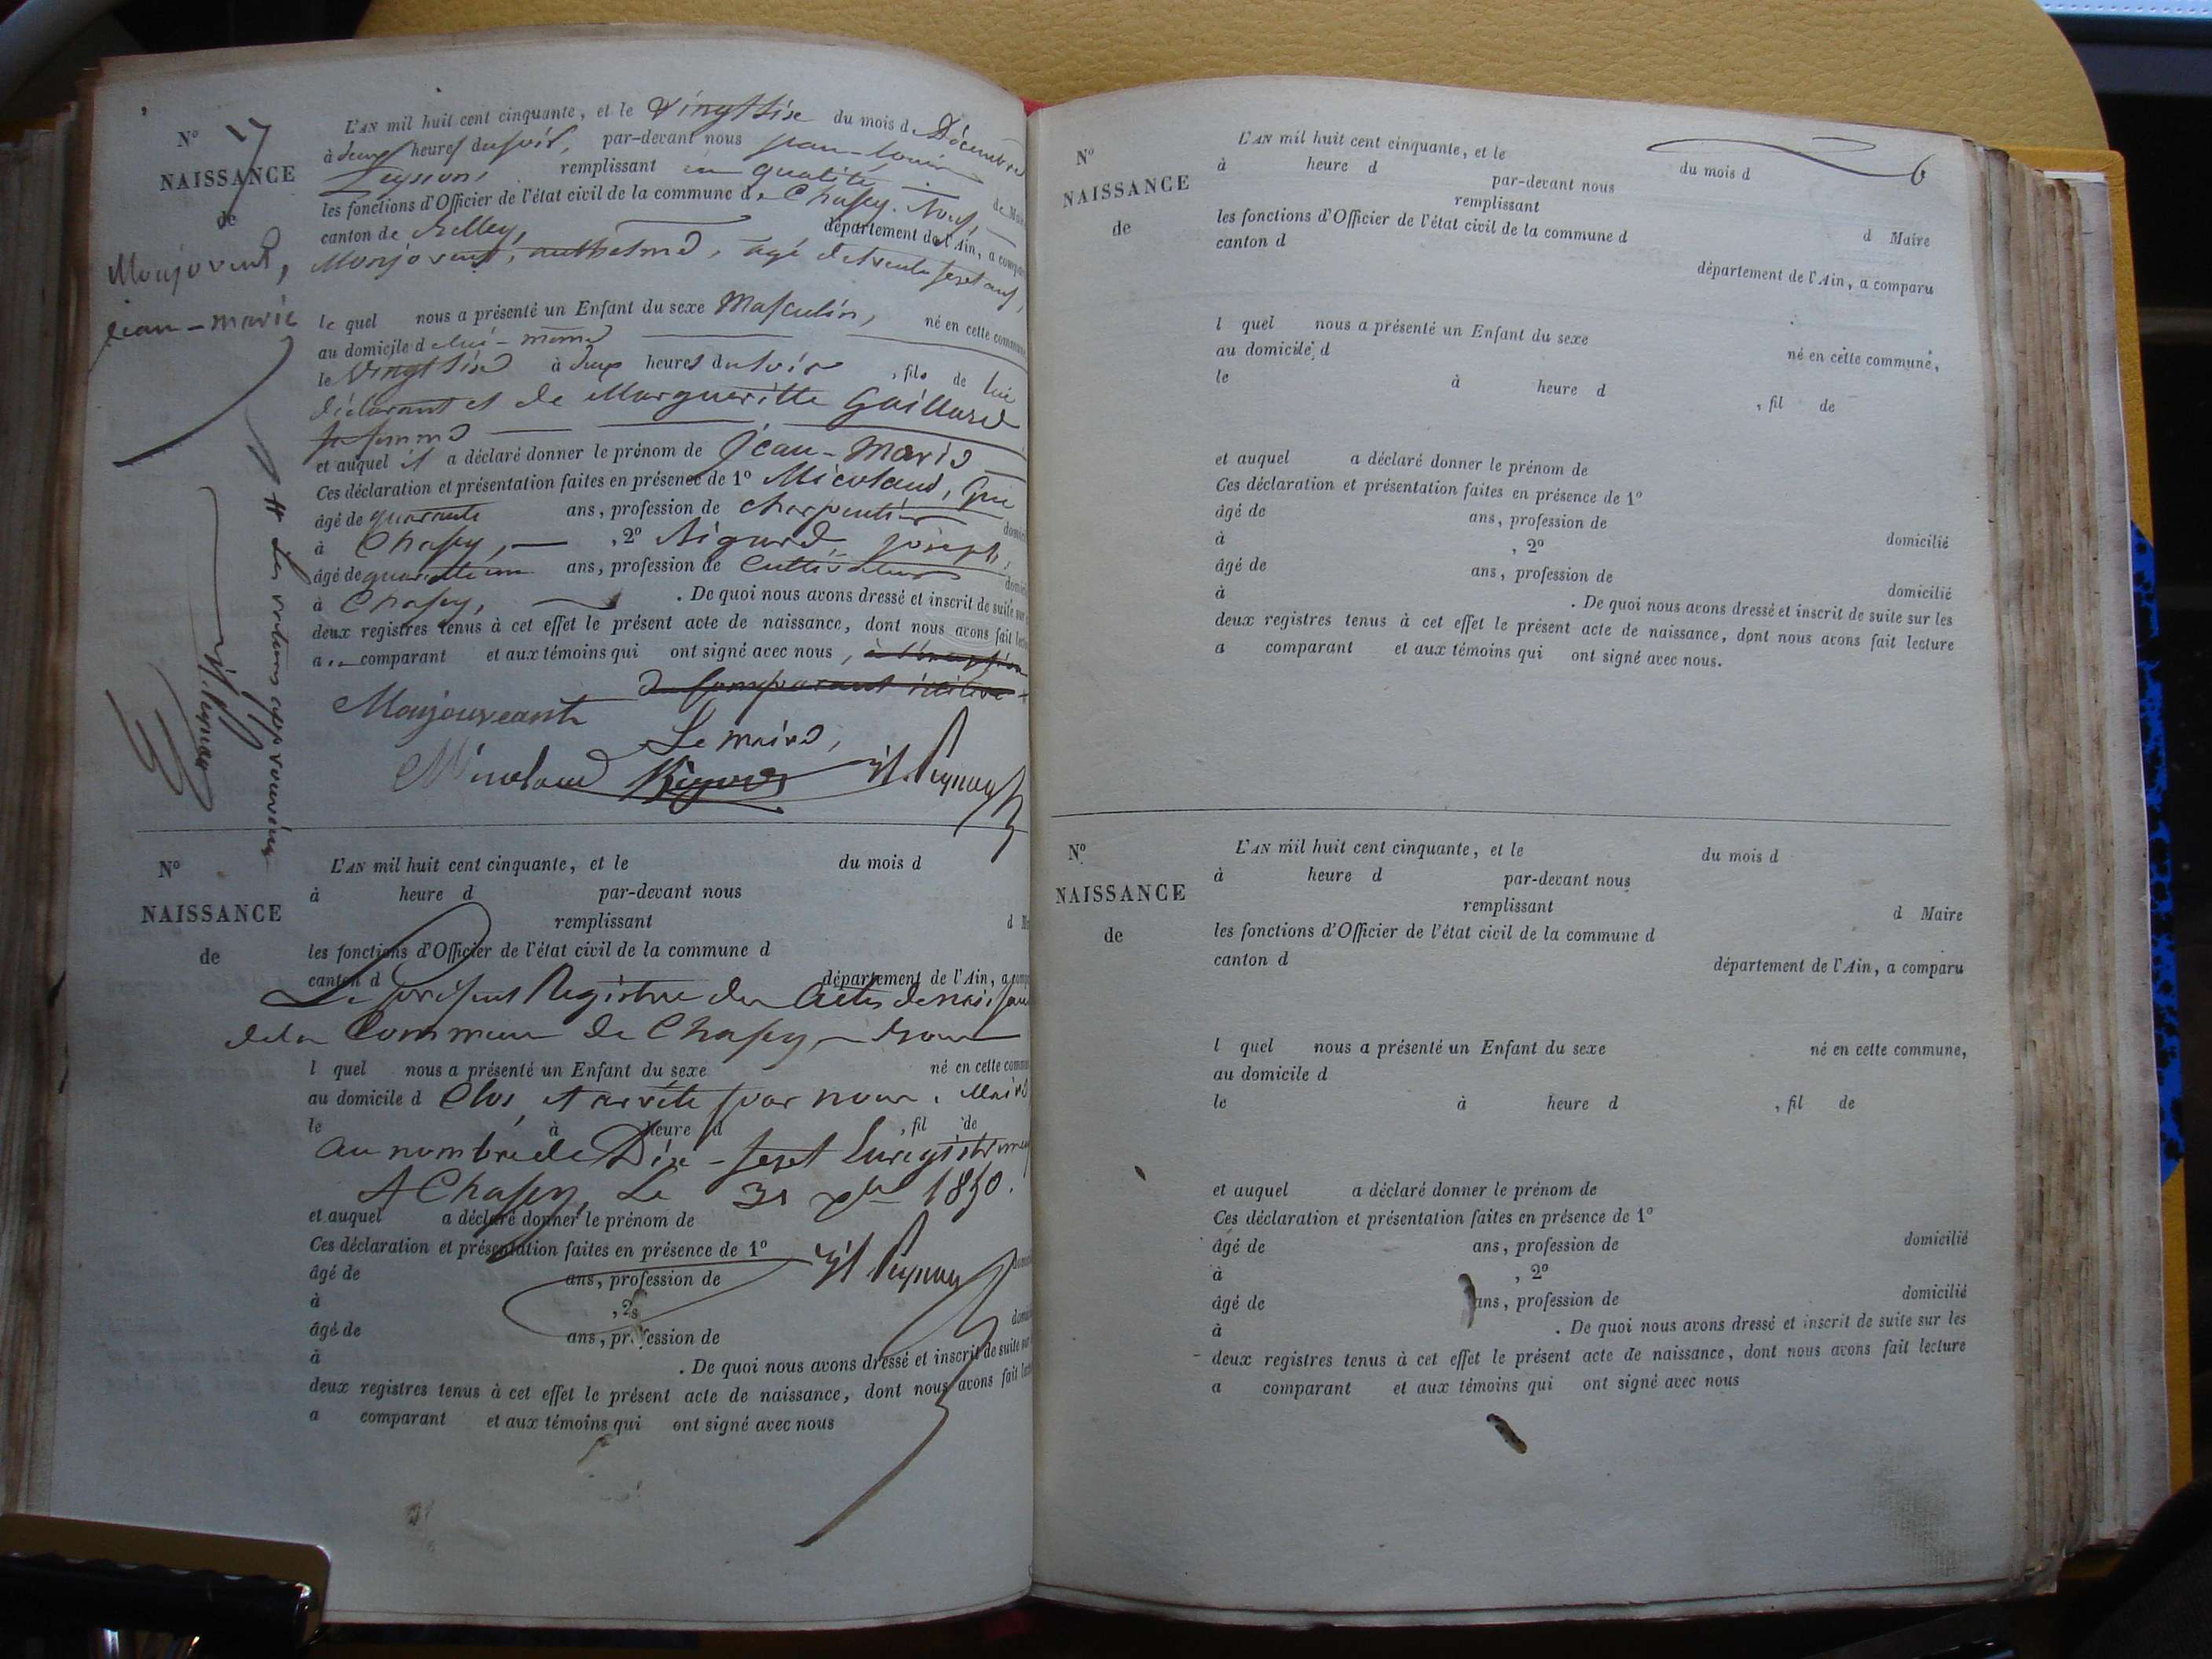 N° 17
NAISSANCE
de
Monjovent,
jean-marie
L'AN mil huit cent cinquante, et le Vingt Six du mois d Décembre
à deux heures du soir, par-devant nous jean-louis
remplissant en qualité de Maire
les fonctions d'Officier de l'état civil de la commune de Chazey-
canton de Belley, département de l'Ain, a comparu
Monjovent, anthelme, agé de trente sept ans,
le quel nous a présenté un Enfant du sexe Masculin, né en cette commune
au domicile de lui-même
le Vingt Six à deux heures du soir, fils de lui
déclarant et de Margueritte Gaillard
sa femme
et auquel il a déclaré donner le prénom de jean-Marie
Ces déclaration et présentation faites en présence de 1° Micoland,
âgé de quarante ans, profession de charpentier
à Chazey, , 2° Rigard, joseph,
âgé de ans, profession de Cultivateur
à Chazey, . De quoi nous avons dressé et inscrit de suite sur
deux registres tenus à cet effet le présent acte de naissance, dont nous avons fait
a comparant et aux témoins qui ont signé avec nous, à l'exception
du comparant illitéré
Monjouveant
Le maire,
Micoland
N°
NAISSANCE
de
L'AN mil huit cent cinquante, et le du mois d
à heure d par-devant nous
remplissant d
les fonctions d'Officier de l'état civil de la commune d
canton d département de l'Ain, a
Le présent Registre des Actes de naissance
de la Commune de Chazey-
l quel nous a présenté un Enfant du sexe né en cette
au domicile d Clos et arrêté par nous, Maire
le à heure d , fil de
au nombre de Dix-sept Enregistrement
A Chazey, Le 31 xbre 1850.
et auquel a déclaré donner le prénom de
Ces déclaration et présentation faites en présence de 1°
âgé de ans, profession de
à , 2°
âgé de ans, profession de
à . De quoi nous avons dressé et inscrit de suite sur
deux registres tenus à cet effet le présent acte de naissance, dont nous avons fait
a comparant et aux témoins qui ont signé avec nous
6
N°
NAISSANCE
de
L'AN mil huit cent cinquante, et le du mois d
à heure d par-devant nous
remplissant d Maire
les fonctions d'Officier de l'état civil de la commune d
canton d département de l'Ain, a comparu
l quel nous a présenté un Enfant du sexe né en cette commune,
au domicile d
le à heure d , fil de
et auquel a déclaré donner le prénom de
Ces déclaration et présentation faites en présence de 1°
âgé de ans, profession de domicilié
à , 2°
âgé de ans, profession de domicilié
à . De quoi nous avons dressé et inscrit de suite sur les
deux registres tenus à cet effet le présent acte de naissance, dont nous avons fait lecture
a comparant et aux témoins qui ont signé avec nous.
N°
NAISSANCE
de
L'AN mil huit cent cinquante, et le du mois d
à heure d par-devant nous
remplissant d Maire
les fonctions d'Officier de l'état civil de la commune d
canton d département de l'Ain, a comparu
l quel nous a présenté un Enfant du sexe né en cette commune,
au domicile d
le à heure d , fil de
et auquel a déclaré donner le prénom de
Ces déclaration et présentation faites en présence de 1°
âgé de ans, profession de domicilié
à , 2°
âgé de ans, profession de domicilié
à . De quoi nous avons dressé et inscrit de suite sur les
deux registres tenus à cet effet le présent acte de naissance, dont nous avons fait lecture
a comparant et aux témoins qui ont signé avec nous